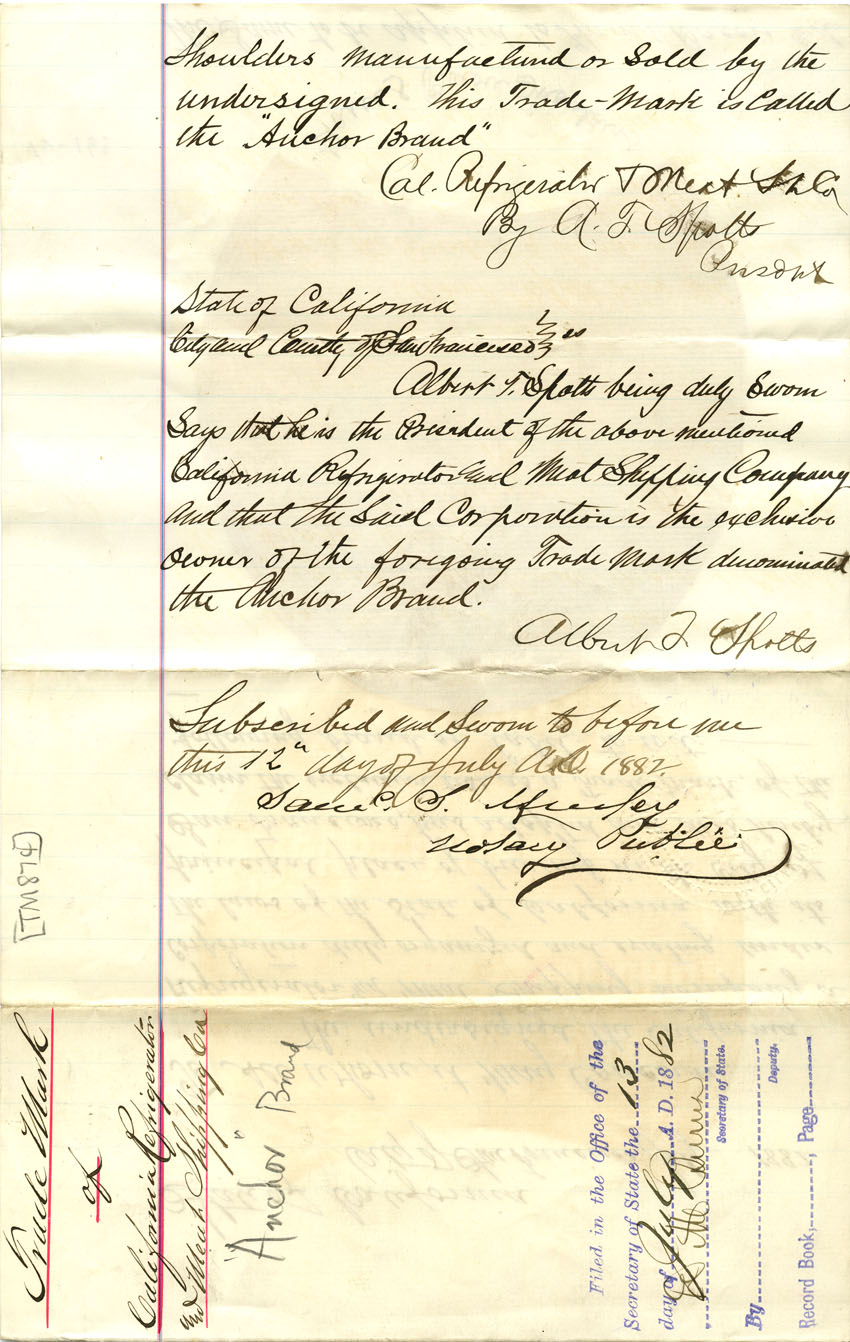 Shoulders manufactured or Sold by the
undersigned. This Trade-Mark is Called
the "Anchor Brand"
Cal. Refrigerator & Meat Sh Co
By A. T. Spotts
State of California
City and County of San Francisco ss
Albert T. Spotts being duly Sworn
Says that he is the President of the above mentioned
California Refrigerator and Meat Shipping Company
and that the Said Corporation is the exclusive
owner of the foregoing Trade Mark denominated
the Anchor Brand.
Albert T. Spotts
Subscribed and Sworn to before me
this 12" day of July A.D. 1882.
Saml. S.
Notary Public
[TM874]
Trade Mark
of
California Refrigerator
and Meat Shipping Co
"Anchor" Brand
Filed in the Office of the
Secretary of State the 13
day of July A.D. 1882
Secretary of State.
By
Deputy.
Record Book, Page